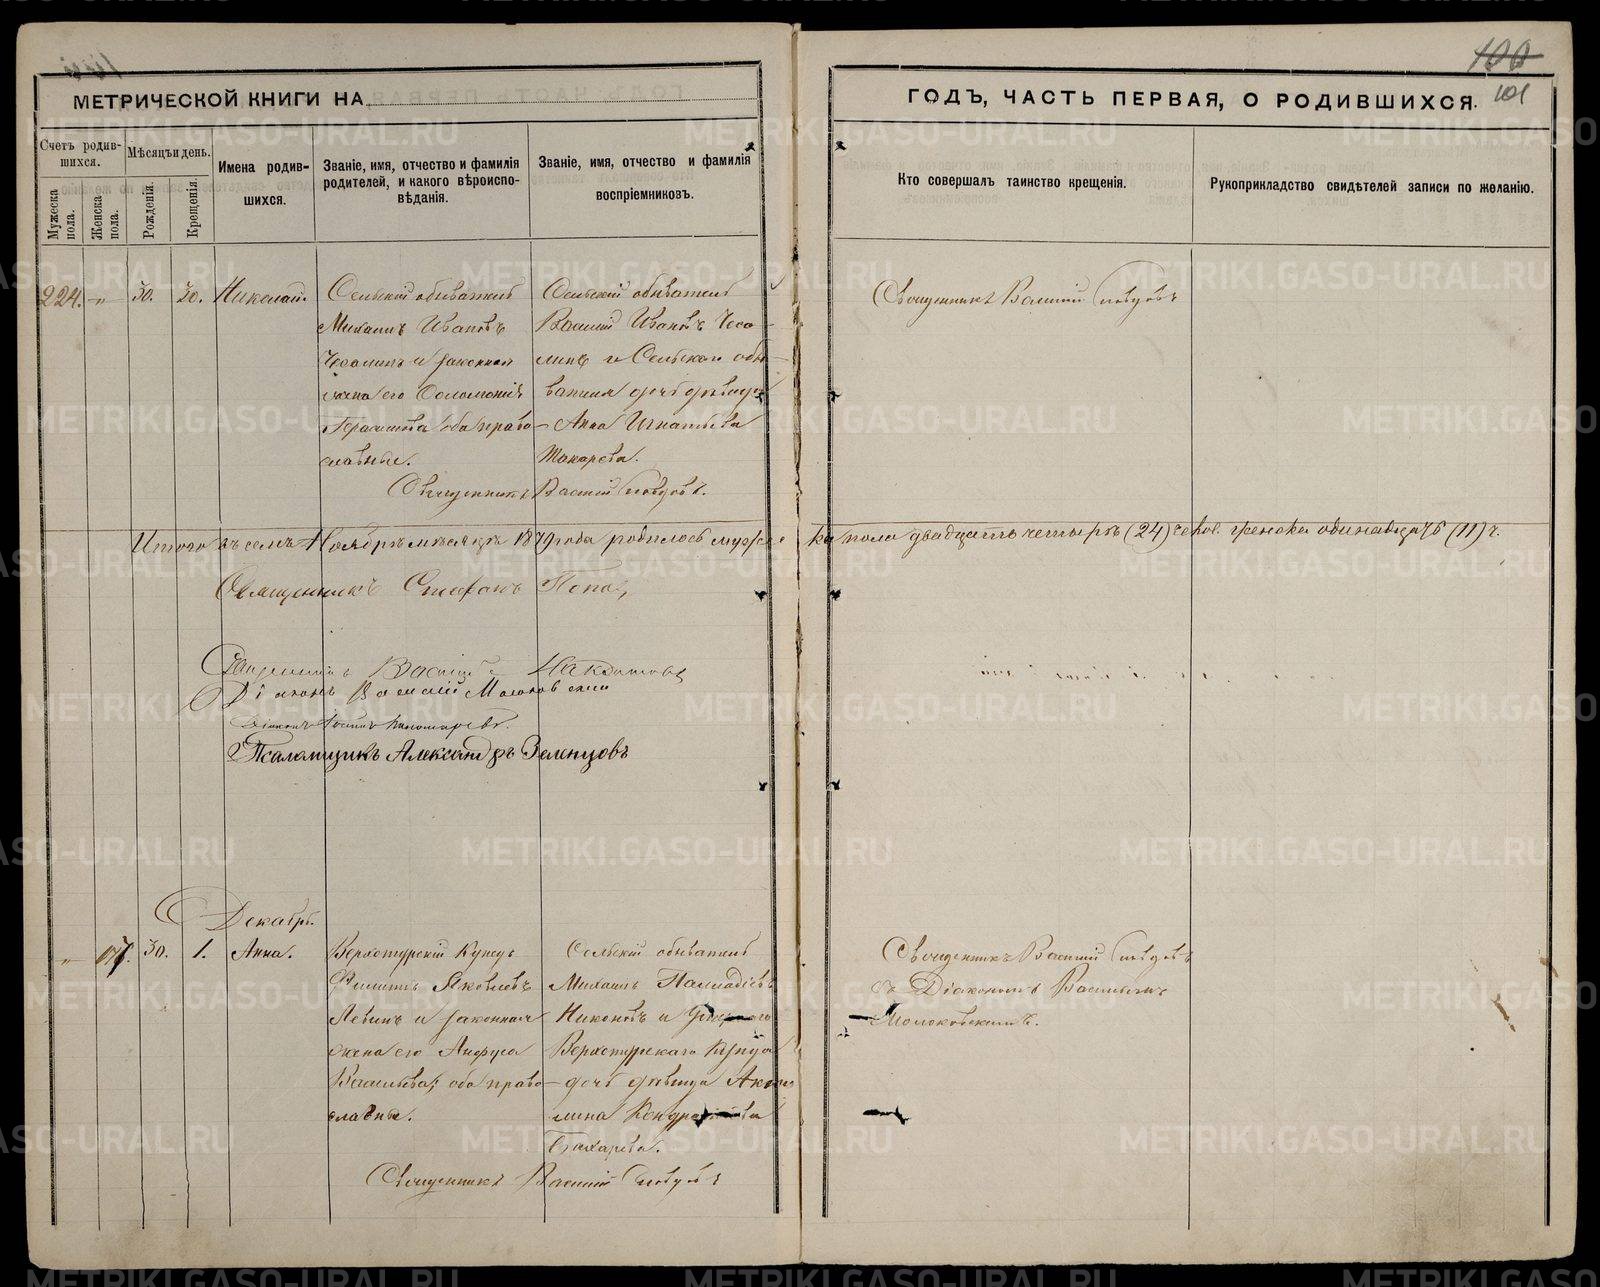 100
101
МЕТРИЧЕСКОЙ КНИГИ НА
ГОДЪ, ЧАСТЬ ПЕРВАЯ, О РОДИВШИХСЯ.
Счетъ родив-
шихся.
Мужеска пола.
Женска пола.
Мѣсяцъ и день.
Рожденія.
Крещенія.
Имена родив-
шихся.
Званіе, имя, отчество и фамилія
родителей, и какого вѣроиспо-
вѣданія.
Званіе, имя, отчество и фамилія
воспріемниковъ.
Кто совершалъ таинство крещенія.
Рукоприкладство свидѣтелей записи по желанію.
224. -„- 30. 30. Николай.
Сельскій обыватель
Михаилъ Ивановъ
и законная
жена его Соломонія
Герасимова оба право-
славные.
Сельскій обыватель
Василій Ивановъ
и Сельскаго обы-
вателя дочь дѣвица
Анна Игнатьева
Токарева.
Священникъ Василій
Священникъ Василій
Итого въ семъ Ноябрѣ мѣсяцѣ 1879 года родилось мужеска пола двадцать четыре (24) чел. женска одинадцать (11) ч.
Священникъ Стефанъ Попо
Священникъ Василій
Діаконъ Василій Молоковскій
Діаконъ Іоаннъ Пономаревъ.
Псаломщикъ Александръ Зеленцовъ
Декабрь.
„ 30. 1. Анна.
Верхотурскій Купецъ
Филиппъ Яковлевъ
Левинъ и законная
жена его Анфуса
Васильева; оба право-
славные.
Сельскій обыватель
Михаилъ Палладіевъ
Никоновъ и
Верхотурскаго Купца
дочь дѣвица Аки-
лина
Бахарева.
Священникъ Василій
Священникъ Василій
съ Діакономъ Василіемъ
Молоковскимъ.
METRIKI.GASO-URAL.RU